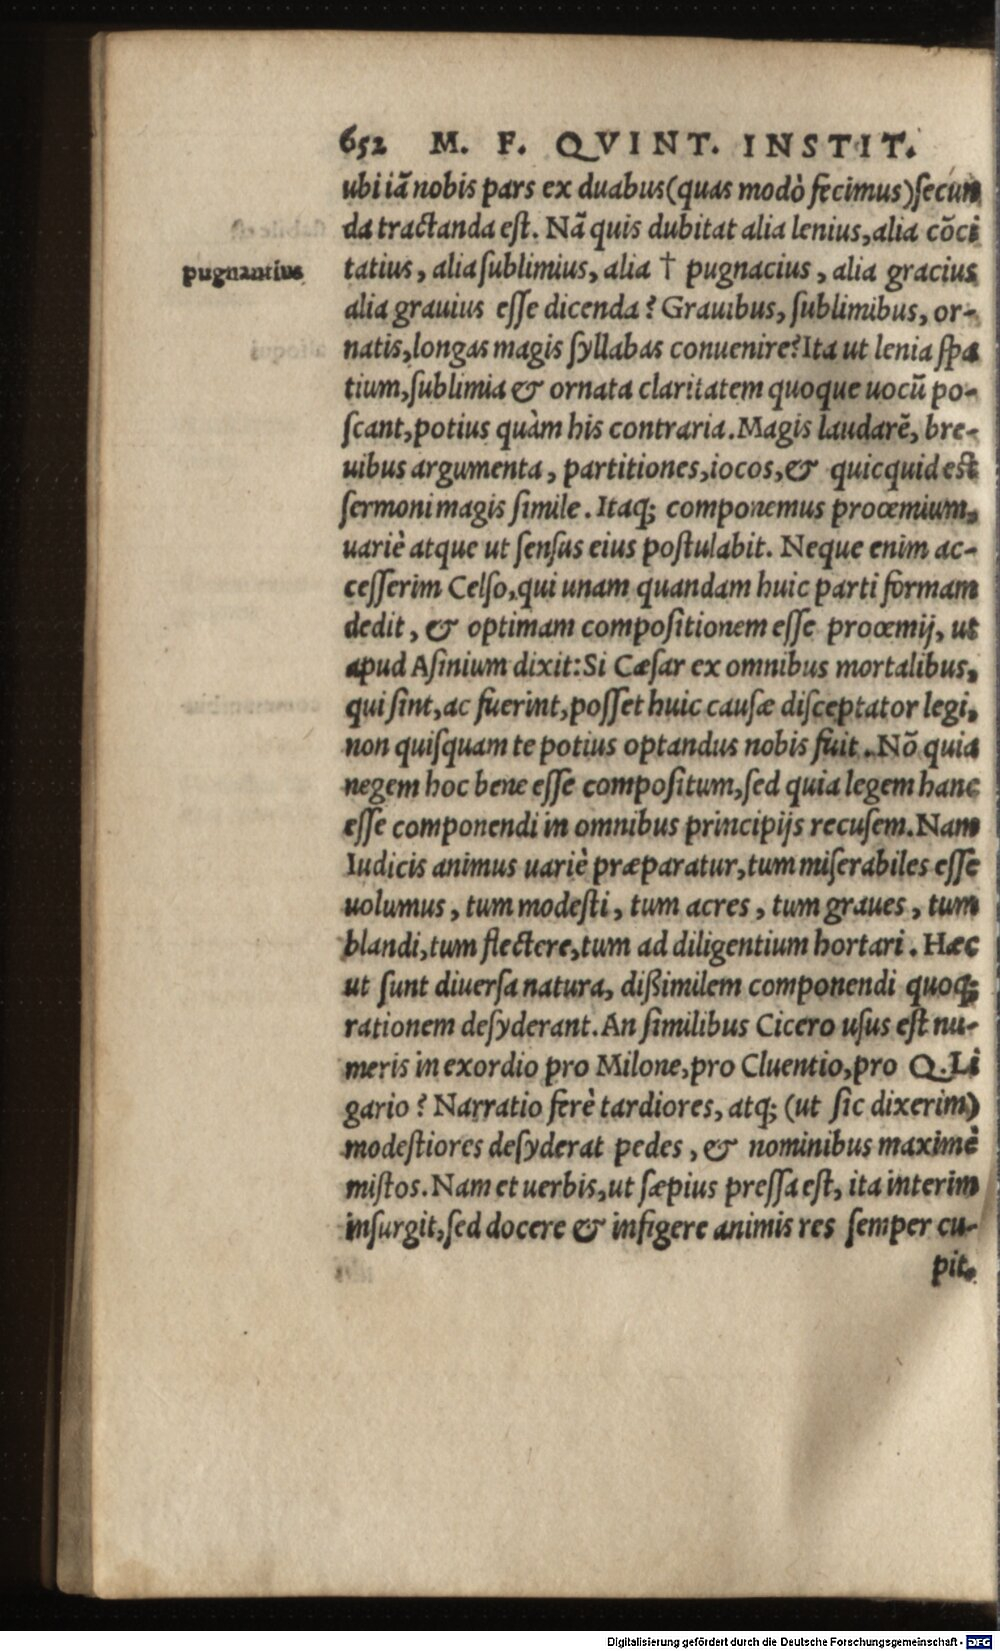 652 M. F. QVINT. INSTIT.
ubi iã nobis pars ex duabus(quas modò fecimus)ſecun
da tractanda eſt. Nã quis dubitat alia lenius,alia cõci
pugnantius
tatius, alia ſublimius, alia † pugnacius, alia gracius
alia grauius eſſe dicenda? Grauibus, ſublimibus, or-
natis,longas magis ſyllabas conuenire?Ita ut lenia ſpa
tium,ſublimia & ornata claritatem quoque uocũ po-
ſcant,potius quàm his contraria.Magis laudarẽ, bre-
uibus argumenta, partitiones,iocos,& quicquid eſt
ſermoni magis ſimile. Itaq; componemus proœmium,
uariè atque ut ſenſus eius poſtulabit. Neque enim ac-
ceſſerim Celſo,qui unam quandam huic parti formam
dedit, & optimam compoſitionem eſſe proœmij, ut
apud Aſinium dixit:Si Cæſar ex omnibus mortalibus,
qui ſint,ac fuerint,poſſet huic cauſæ diſceptator legi,
non quiſquam te potius optandus nobis fuit. Nõ quia
negem hoc bene eſſe compoſitum,ſed quia legem hanc
eſſe componendi in omnibus principijs recuſem.Nam
Iudicis animus uariè præparatur,tum miſerabiles eſſe
uolumus, tum modeſti, tum acres, tum graues, tum
blandi,tum flectere,tum ad diligentium hortari. Hæc
ut ſunt diuerſa natura, dißimilem componendi quoq;
rationem deſyderant.An ſimilibus Cicero uſus eſt nu-
meris in exordio pro Milone,pro Cluentio,pro Q.Li
gario? Narratio ferè tardiores, atq; (ut ſic dixerim)
modeſtiores deſyderat pedes, & nominibus maximè
miſtos.Nam et uerbis,ut ſæpius preſſa eſt, ita interim
inſurgit,ſed docere & infigere animis res ſemper cu-
pit.
Digitalisierung gefördert durch die Deutsche Forschungsgemeinschaft - DFG